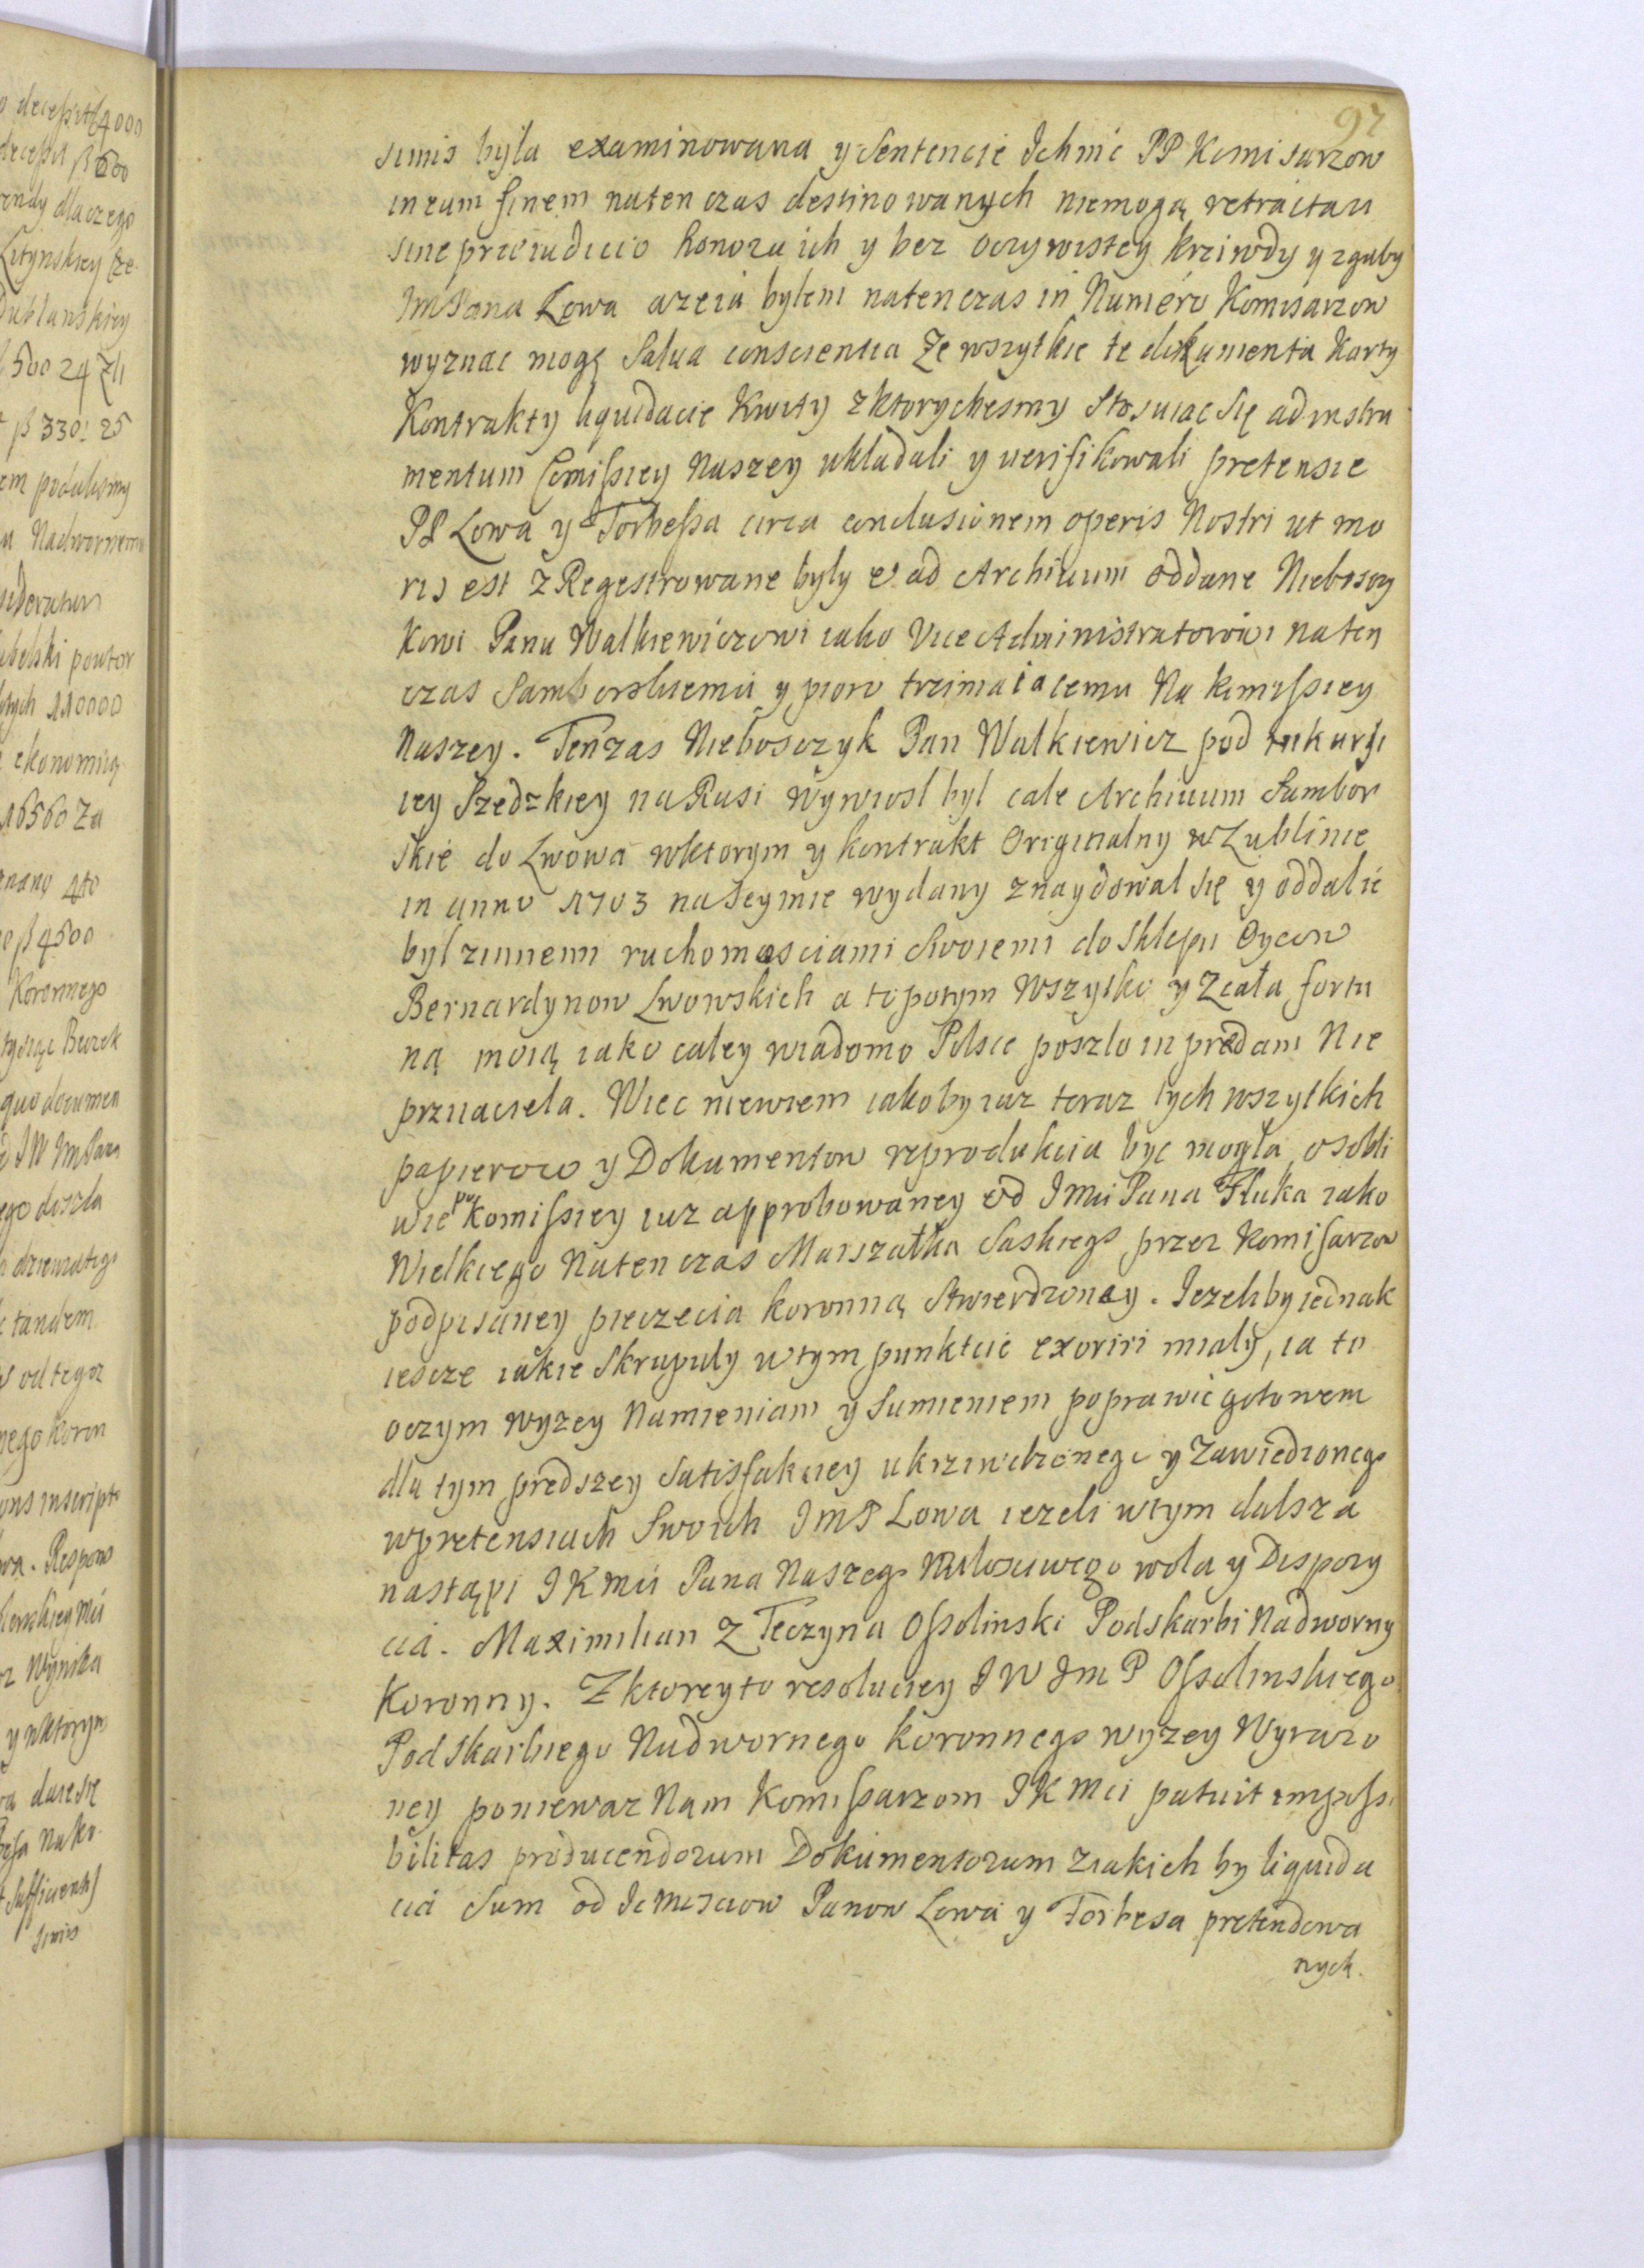 97
simis była examinowana y Sentencie Ichmć PP Komisarzow
in eum finem naten czas destinowanych niemogą retractari
sine preiudicio honoru ich y bez oczywistey krziwdy y zguby
Im Pana Lowa a że ia byłem natenczas in Numero Komisarzow
wyznac mogę Salua conscientia Ze wszytkie te dokumenta Karty
Kontrakty liquidacie Kwity z ktorychesmy Stosuiąc Się ad instru
mentum Comissiey Naszey układali y uerifikowali pretensie
PP Lowa y Forbessa circa conclusionem operis Nostri ut mo
ris est z Regestrowane były et ad Archiuum oddane Niebosczy
kowi Panu Walkiewiczowi iako Vice Administratorowi naten
czas Samborskiemu y pioro trzimaiacemu Na komissiey
Naszey. Tenzas Niebosczyk Pan Walkiewicz pod inkursi
iey Szedzkiey na Rusi wywiosl byl cale Archiuum Sambor
skie do Lwowa wktorym y kontrakt Originalny w Lublinie
in anno 1703 na Seymie wydany znaydował się y oddalie
był zinnemi ruchomosciami Swoiemi do Sklepu Oycow
Bernardynow Lwowskich a to potym Wszytko y Zcała fortu
ną moią iako całey wiadomo Polsce poszło in predam Nie
przyiaciela. Wiec niewiem iakoby iuz teraz tych wszytkich
papierow y Dokumentow reprodukcia byc mogła osobli
wie po Komissiey iuz approbowaney od Imci Pana Fluka iako
Wielkiego Natenczas Marszałka Saskiego przez Komisarzow
podpisaney pieczecia koronną Stwierdzoney. Iezeliby iednak
iescze iakie Skrupuły w tym punktcie exoriri miały, ia to
oczym wyzey Namieniam y Sumieniem poprawic gotowem
dla tym prędszey Satisfakciey ukrziwdzonego y Zawiedzionego
wpretensiach Swoich Im P Lowa iezeli w tym dalsza
nastąpi I K Mci Pana Naszego Miłosciwego wola y Dispozy
cia. Maximilian Z Teczyna Ossolinski Podskarbi Nadworny
Koronny. Z ktoreyto resoluciey I W Im P Ossolinskiego
Podskarbiego Nadwornego Koronnego wyzey Wyrazo
ney poniewaz Nam Komissarzom I K Mci patuit impossi
bilitas producendorum Dokumentorum z iakich by liquida
cia Sum od Ichmsciow Panow Lowa y Forbesa pretendowa
nych.